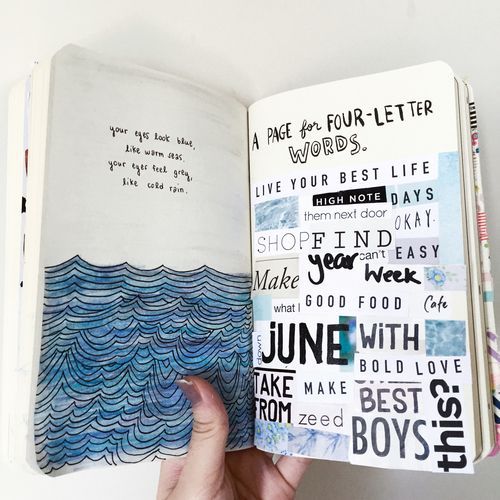 your eyes look blue,
like warm seas.
your eyes feel grey,
like cold rain.
A PAGE for FOUR-LETTER
WORDS.
LIVE YOUR BEST LIFE
HIGH NOTE
DAYS
them next door
OKAY.
SHOP
FIND
can't
EASY
Make
year
Week
what
GOOD FOOD
Cafe
down
JUNE
WiTH
BOLD LOVE
TAKE
FROM
MAKE
zeed
BEST
BOYS
this?